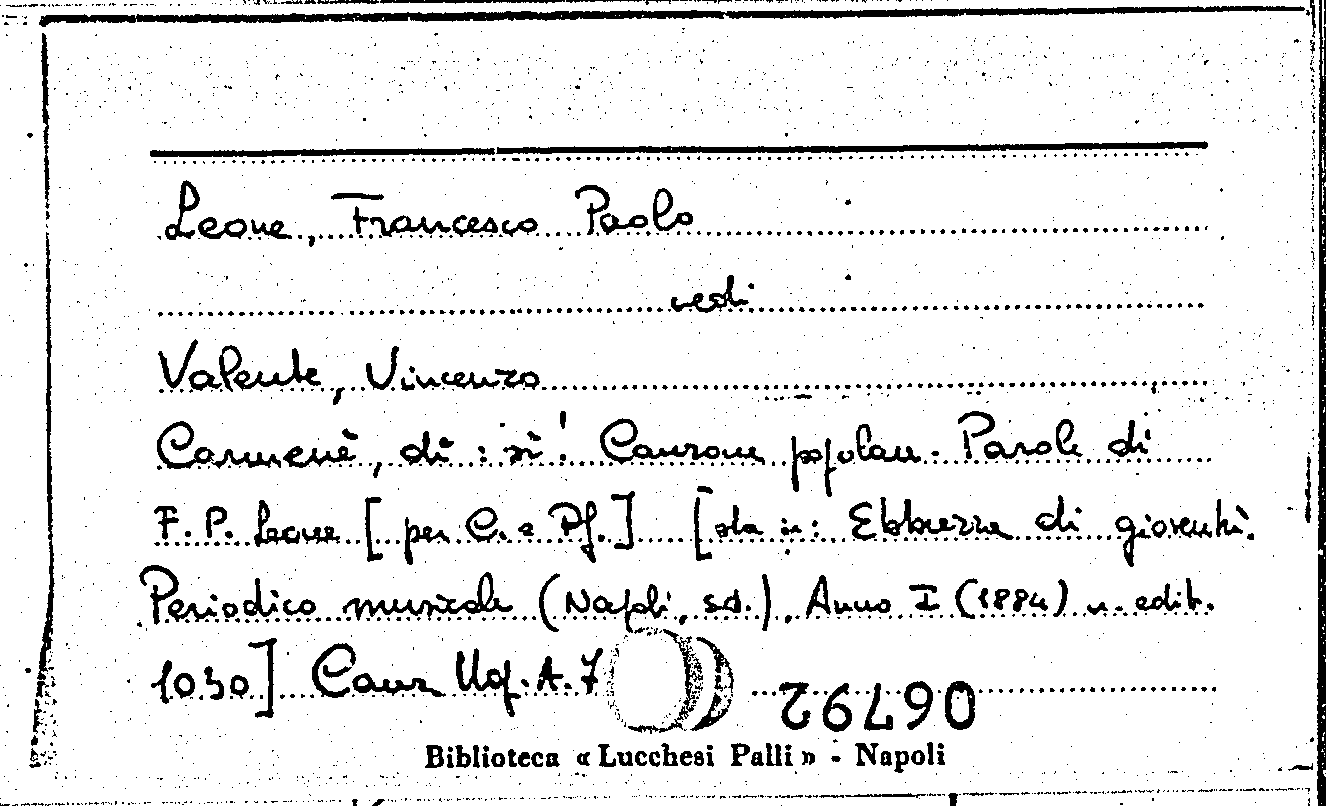 Leone, Francesco Paolo
vedi
Valente, Vincenzo
Carmenè, dì : sì! Canzone popolare. Parole di
F. P. Leone [per C. e Pf.] [sta in: Ebbrezze di gioventù.
Periodico musicale (Napoli, s.d.), Anno I (1884) n. edit.
1030] Canz Un. A. 7
06792
Biblioteca « Lucchesi Palli » - Napoli